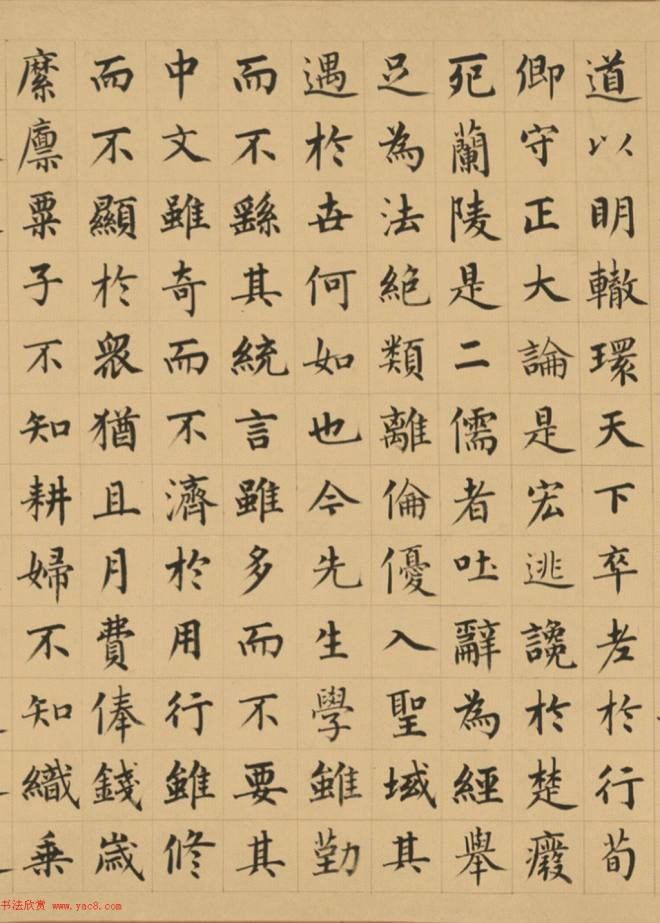 道以明轍環天下卒老於行荀
卿守正大論是宏逃讒於楚癈
死蘭陵是二儒者吐辭為經舉
足為法絕類離倫優入聖域其
遇於世何如也今先生學雖勤
而不繇其統言雖多而不要其
中文雖奇而不濟於用行雖修
而不顯於衆猶且月費俸錢歲
縻廪粟子不知耕婦不知織乗
书法欣赏 www.yac8.com